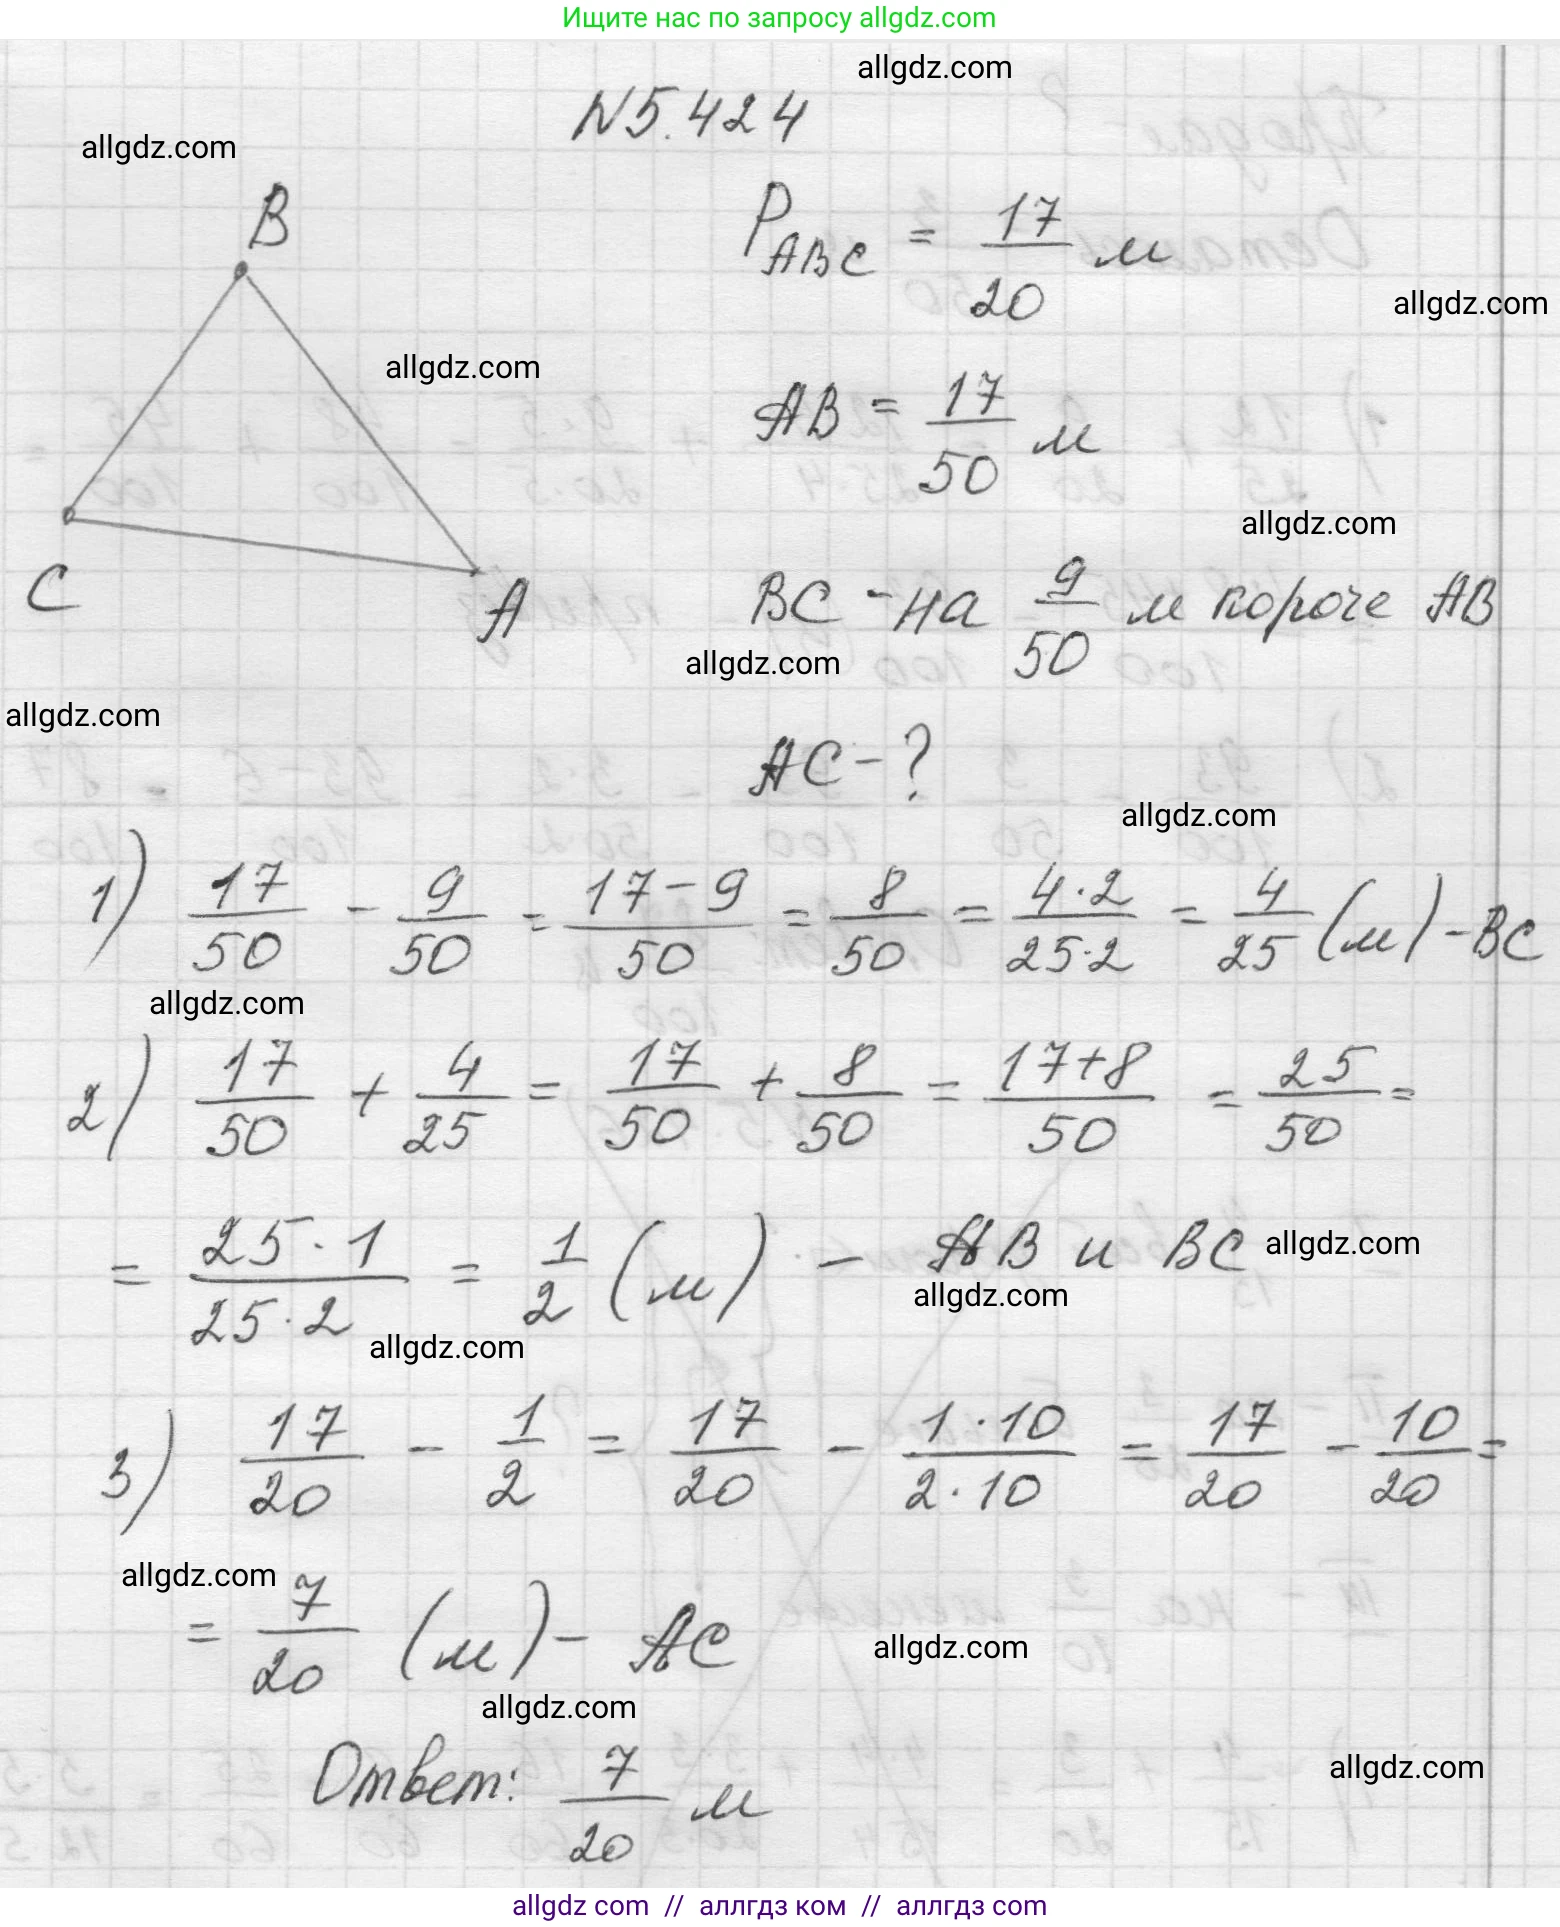 Ищите нас по запросу allgdz.com
allgdz.com
N5.424
allgdz.com
B
P_ABC = 17/20 м
allgdz.com
allgdz.com
AB = 17/50 м
allgdz.com
C
A
BC - на 9/50 м короче AB
allgdz.com
allgdz.com
AC - ?
allgdz.com
1) 17/50 - 9/50 = 17-9/50 = 8/50 = 4·2/25·2 = 4/25 (м) - BC
allgdz.com
2) 17/50 + 4/25 = 17/50 + 8/50 = 17+8/50 = 25/50 =
= 25·1/25·2 = 1/2 (м) - AB и BC
allgdz.com
allgdz.com
allgdz.com
3) 17/20 - 1/2 = 17/20 - 1·10/2·10 = 17/20 - 10/20 =
allgdz.com
= 7/20 (м) - AC
allgdz.com
allgdz.com
Ответ: 7/20 м
allgdz.com
allgdz com // аллгдз ком // аллгдз com